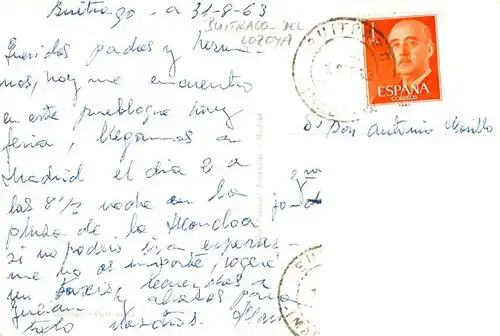 Buitrago - a 31-8-63
BUITRAGO-DEL
LOZOYA
Queridos padres y herma-
nos, hoy me encuentro
en este pueblo que hay
feria, llegamos a
Madrid el dia 2 a
las 8 1/2 noche en la
plaza de la Moncloa
si no podeis ir a esperar-
me no os importe, cogeré
un taxis, recuerdos a
Julian y abrazos para
todos vosotros.
ESPAÑA
CORREOS
Sr Don Antonio Morillo